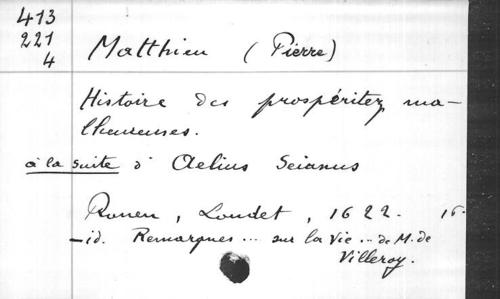 413
221
4
Matthieu (Pierre)
Histoire des prospéritez ma-
lheureuses.
à la suite d'Aelius Seianus
Rouen, Loudet, 1622. 16.
- id. Remarques ... sur la Vie ... de M. de
Villeroy.